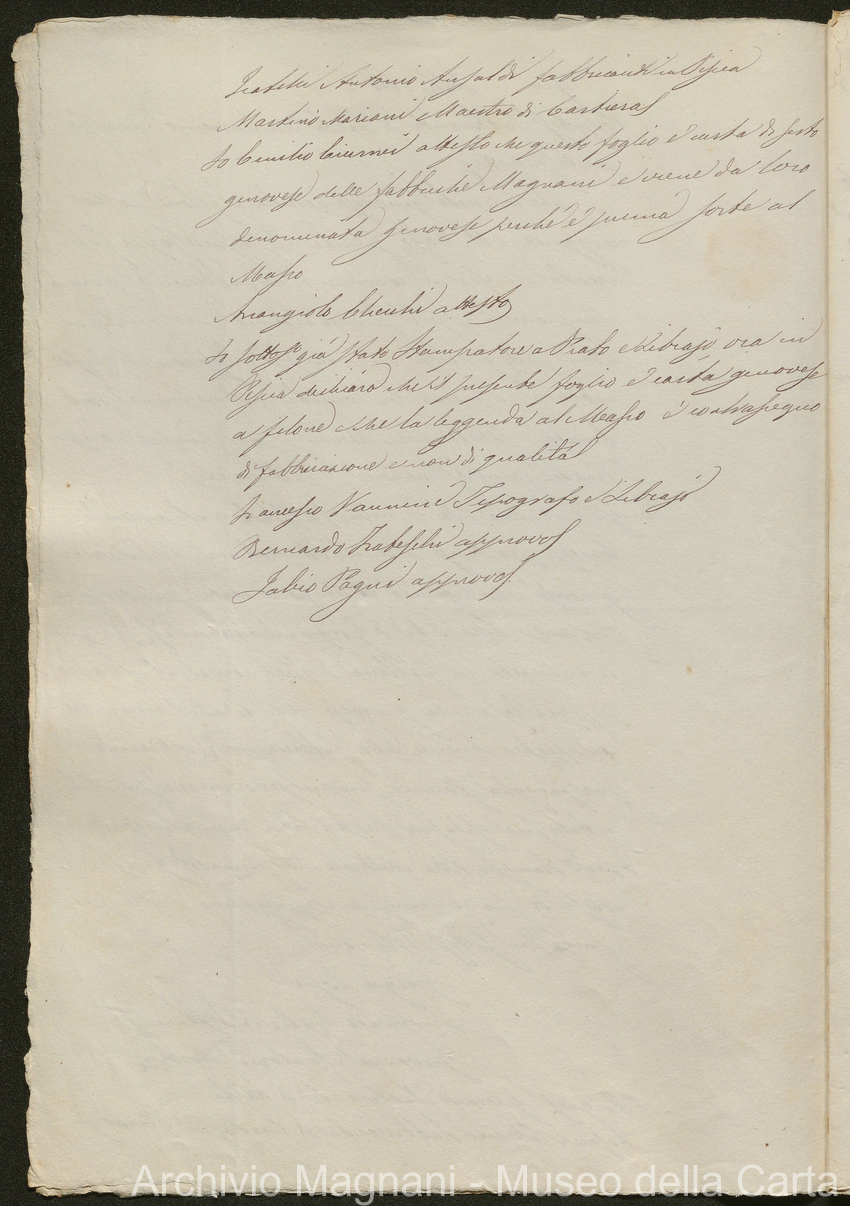 Fratelli Antonio Ansaldi fabbricanti in Pescia
Martino Mariani Maestro di Cartiera
Io Emilio Ciurnei attesto che questo foglio è carta di sesto
genovese delle fabbriche Magnani e viene da loro
denominata genovese perchè è prima sorte al
Masso
Arcangiolo Checchi attesto
Io sottos° già stato Stampatore a Prato e Librajo ora in
Pescia dichiaro che il presente foglio è carta genovese
a filone che la leggenda al Masso è contrasegno
di fabbricazione e non di qualità
Francesco Vannini Tipografo e Librajo
Bernardo Frateschi approvo
Fabio Pagni approvo
Archivio Magnani - Museo della Carta